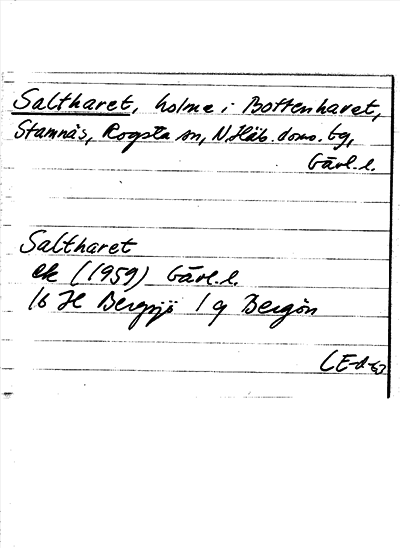 Saltharet, holme i Bottenhavet,
Stamnäs, Rogsta sn, N. Häls. doms. tg,
Gävl. l.
Saltharet
ek (1959) Gävl. l.
16 H Bergsjö 1 g Bergön